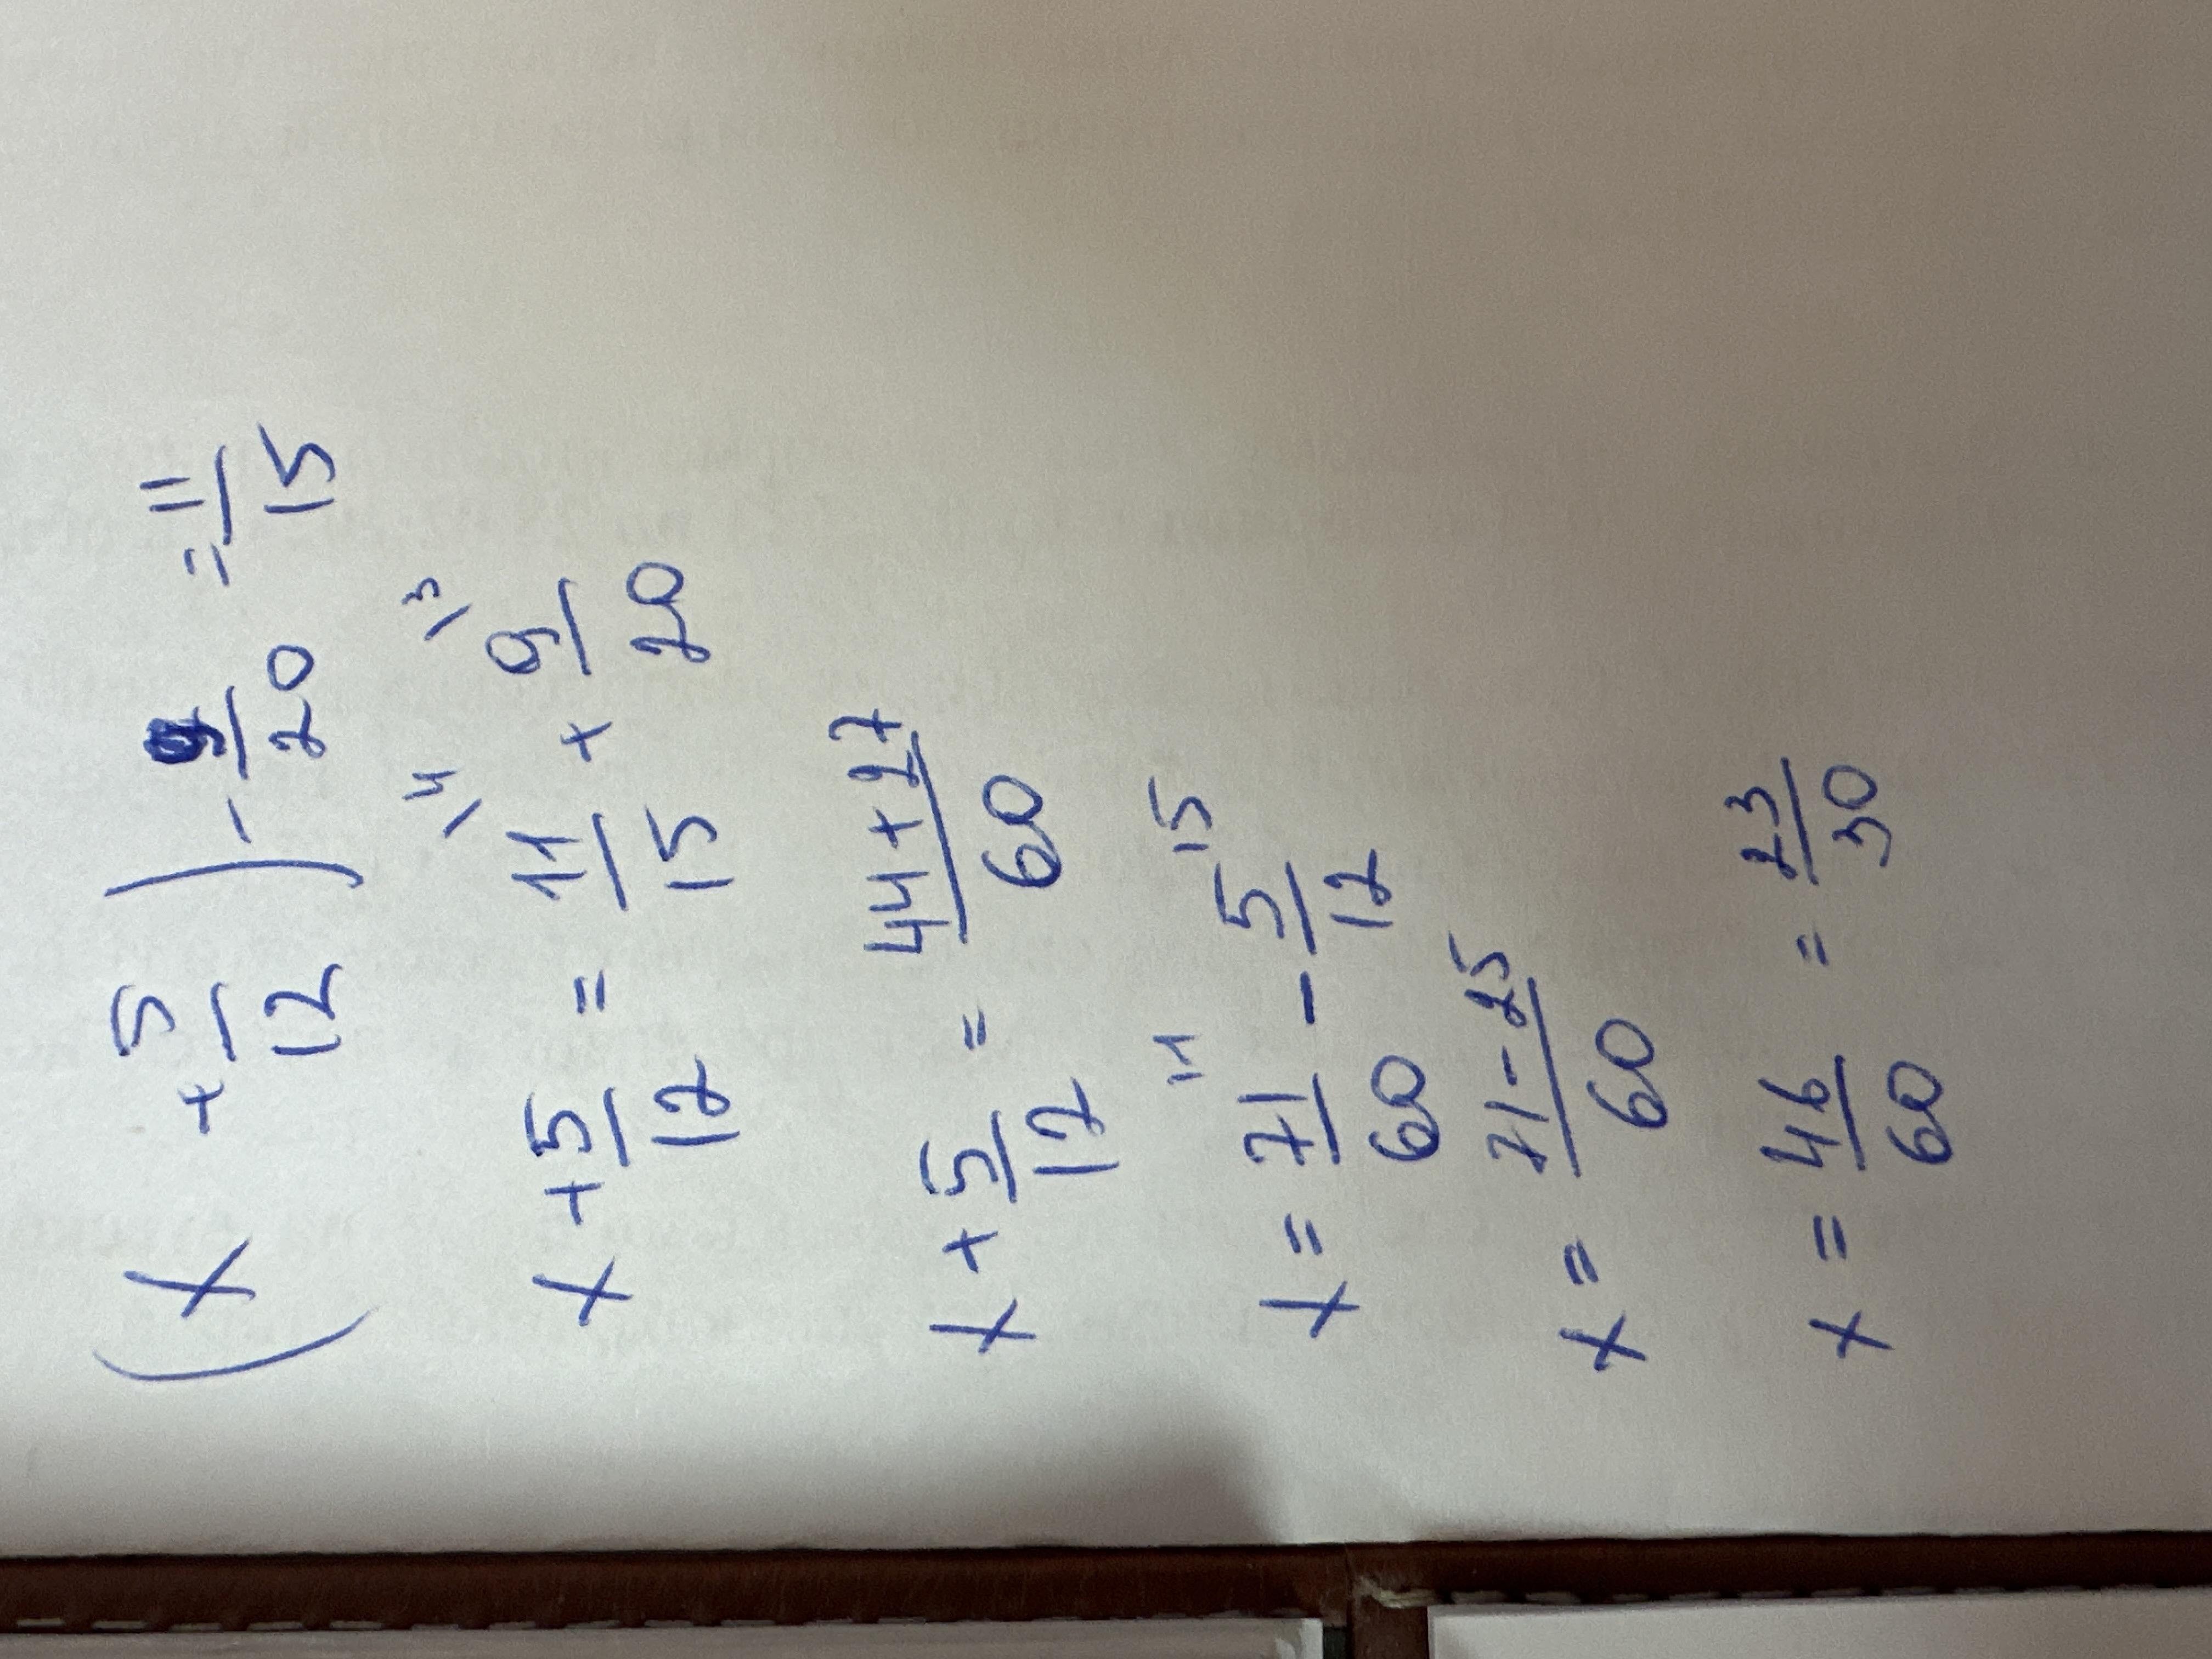 (x + 5/12) - 9/20 = 11/15
\4 \3
x + 5/12 = 11/15 + 9/20
x + 5/12 = 44+27/60
\1 \5
x = 71/60 - 5/12
x = 71-25/60
x = 46/60 = 23/30